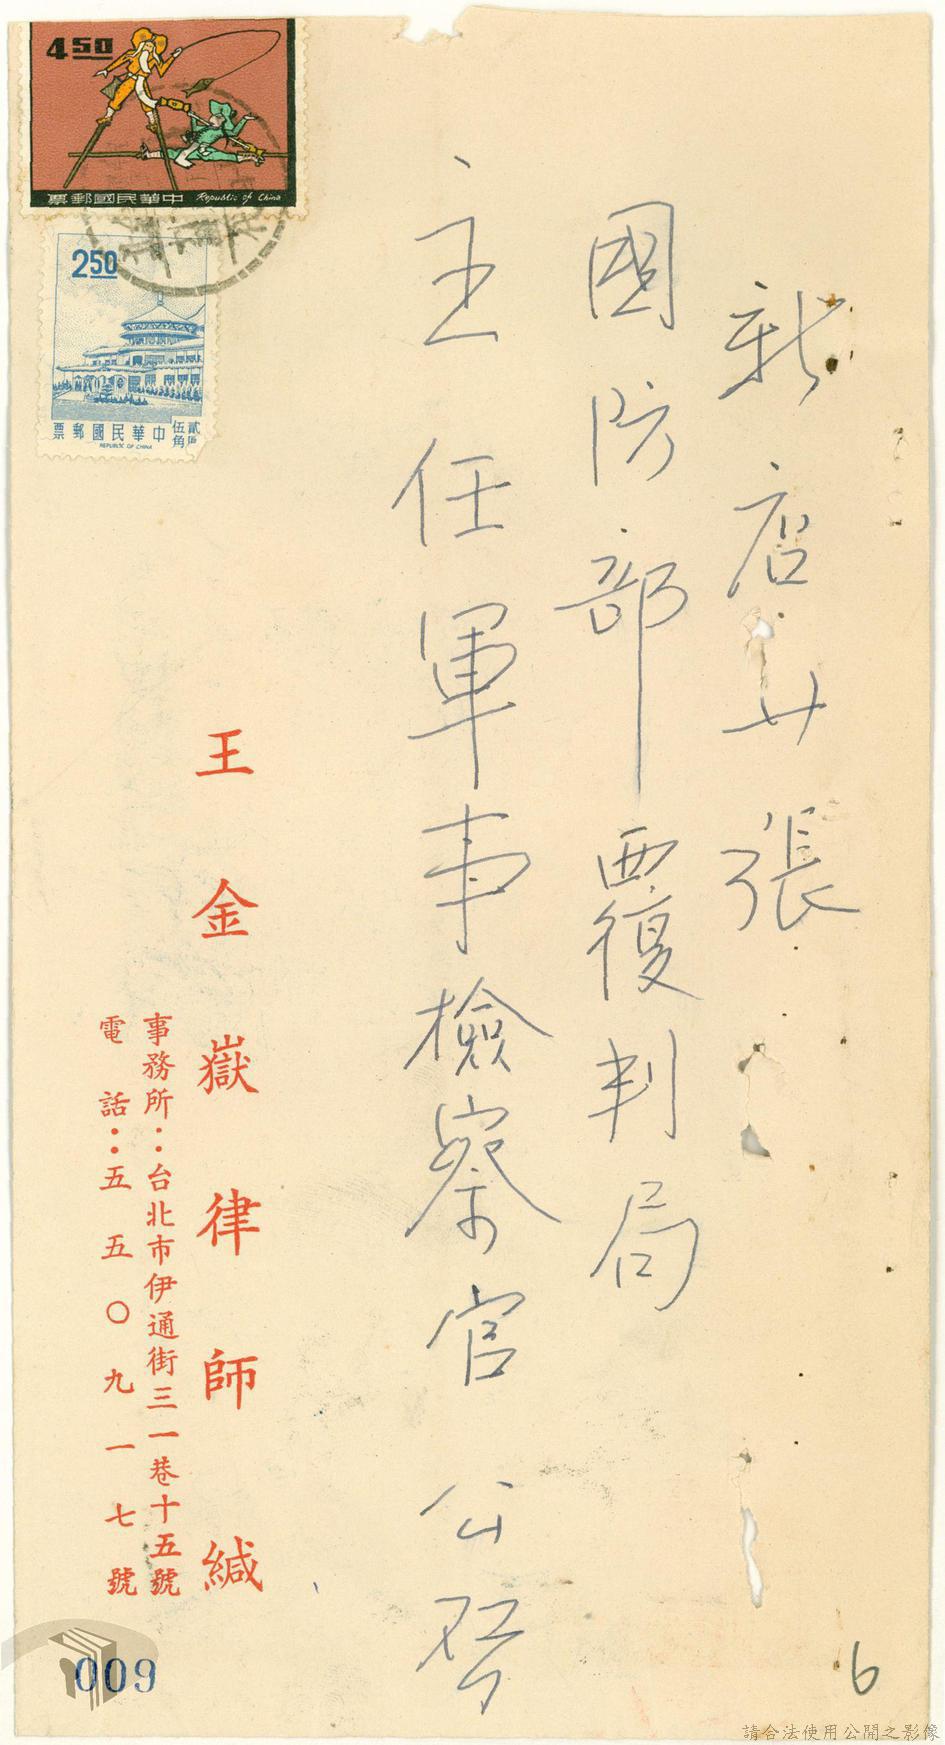 新店廿張
國防部覆判局
主任軍事檢察官 公啓
王金嶽律師緘
事務所：台北市伊通街三一巷十五號
電話：五五〇九一七號
4.50
中華民國郵票 Republic of China
2.50
貳圓
伍角
中華民國郵票
REPUBLIC OF CHINA
009
6
請合法使用公開之影像